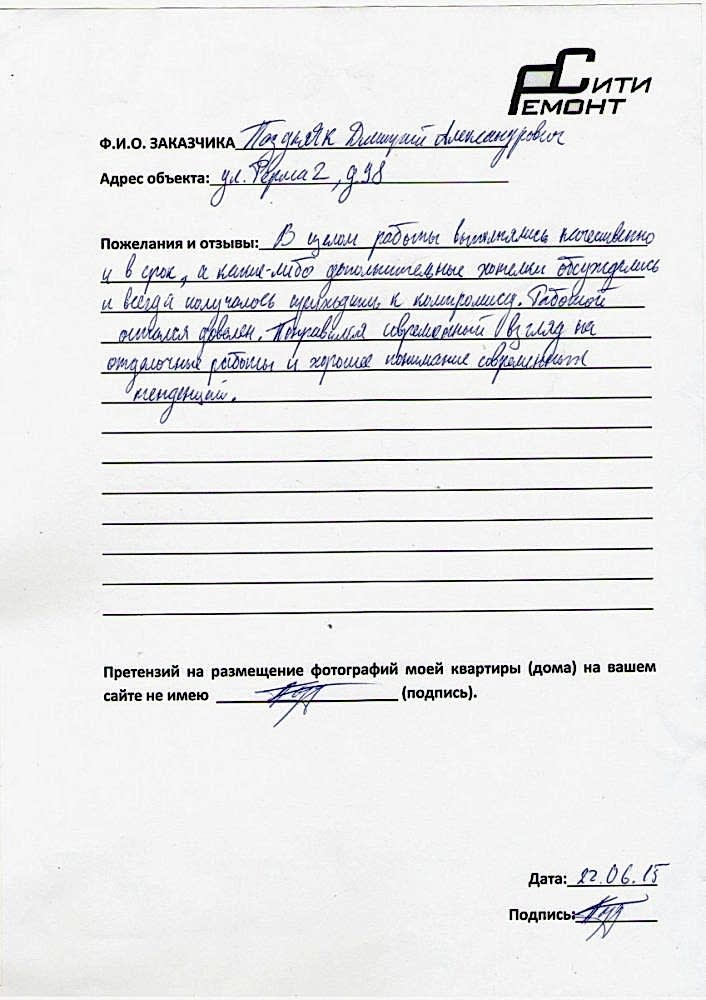 СИТИ
РЕМОНТ
Ф.И.О. ЗАКАЗЧИКА Поздняк Дмитрий Александрович
Адрес объекта: ул. Ферма 2, д. 98
Пожелания и отзывы: В целом работы выполнялись качественно
и в срок, а какие-либо дополнительные хотелки обсуждались
и всегда получалось приходить к компромиссу. Работой
остался доволен. Понравился современный взгляд на
отделочные работы и хорошее понимание современных
тенденций.
Претензий на размещение фотографий моей квартиры (дома) на вашем
сайте не имею (подпись).
Дата: 22.06.15
Подпись: